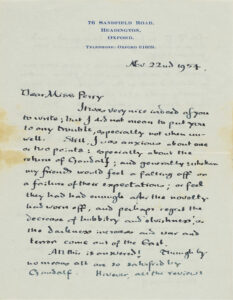 76 SANDFIELD ROAD,
HEADINGTON,
OXFORD.
TELEPHONE: OXFORD 61639.
Nov 22nd 1954.
Dear Miss Perry
It was very nice indeed of you
to write; but I did not mean to put you
to any trouble, especially not when un-
well. Still, I was anxious about one
or two points: especially about the
return of Gandalf; and generally whether
my friends would feel a falling off or
a failure of their expectations; or feel
they had had enough after the novelty
had worn off, and perhaps regret the
decrease of hobbitry and elvishness, as
the darkness increases and war and
terror come out of the East.
All this is answered! Though by
no means all are so satisfied by
Gandalf. However, all the reviews